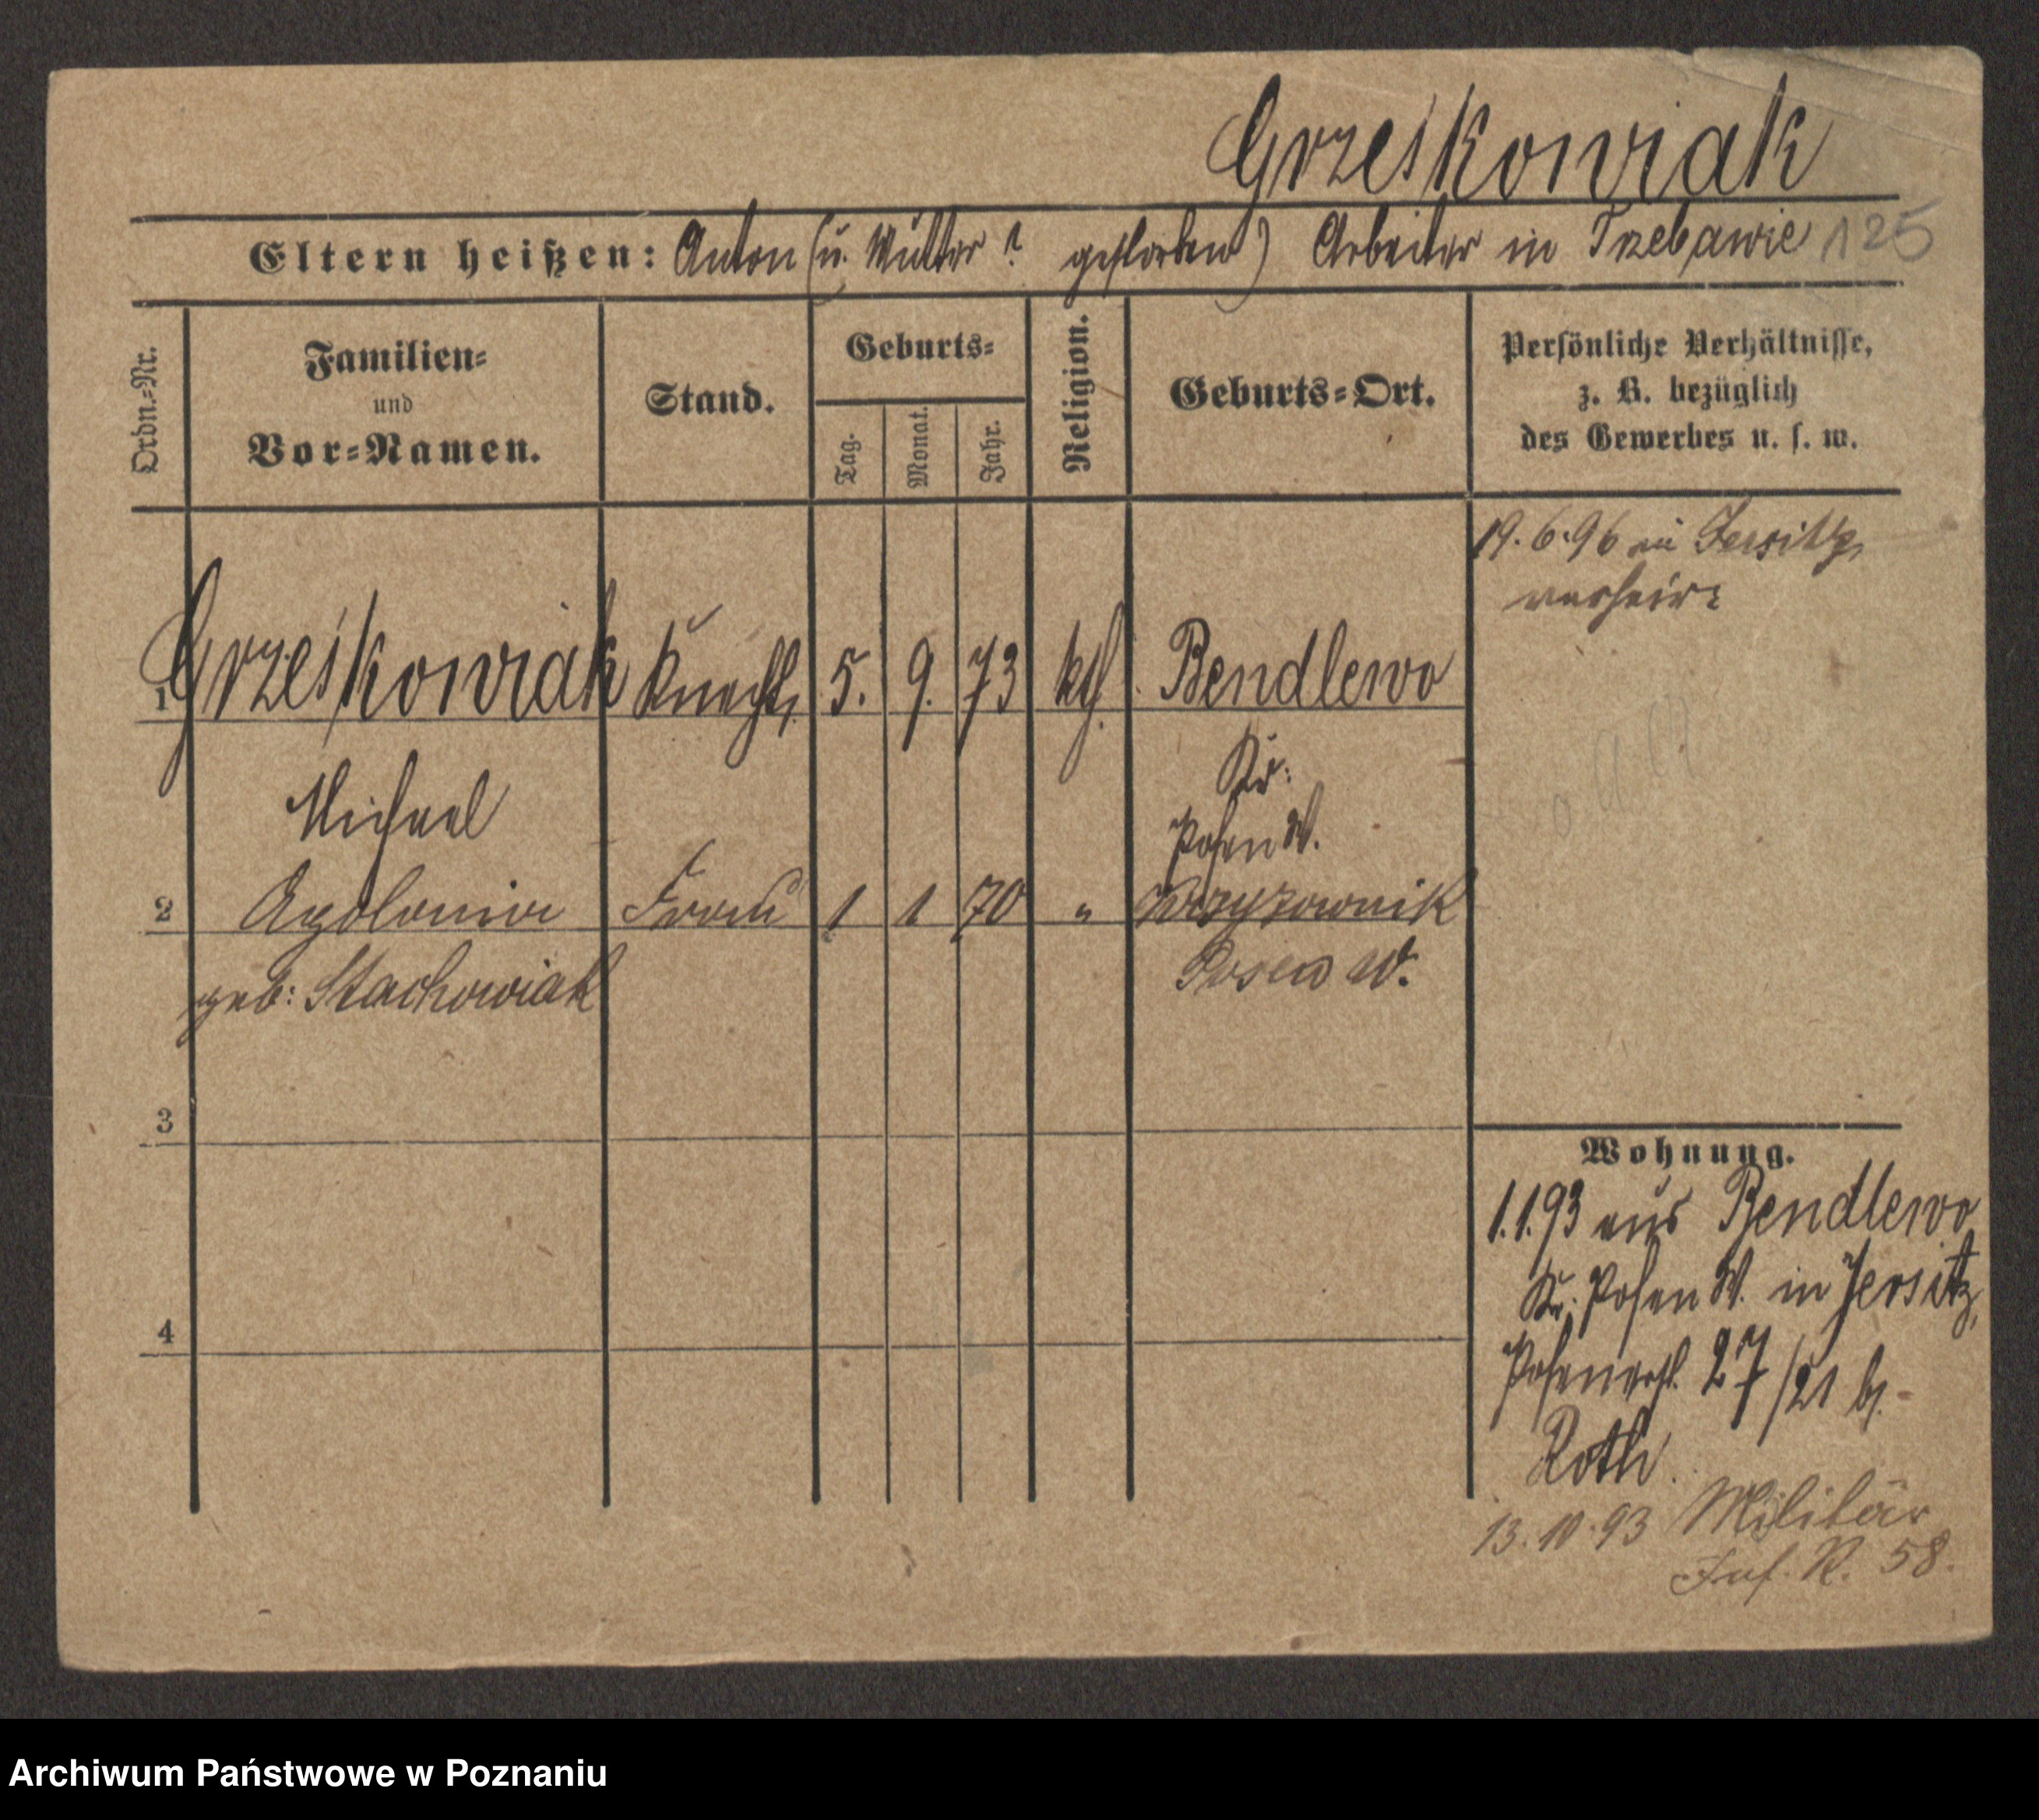 Grześkowiak
Eltern heißen: Anton (u. Mutter ? gestorben) Arbeiter in Trzebawie 125
Ordn.-Nr.
Familien-
und
Vor-Namen.
Stand.
Geburts-
Tag.
Monat.
Jahr.
Religion.
Geburts-Ort.
Persönliche Verhältnisse,
z. B. bezüglich
des Gewerbes u. s. w.
19.6.96 in Jersitz,
verheir:
1 Grześkowiak Knecht, 5. 9. 73 kth. Bendlewo
Michael
Kr:
Posen W.
2 Apolonia Frau 1 1 70 " Krzyzownik
geb: Stachowiak
Posen W.
3
4
Wohnung.
1.1.93 aus Bendlewo
Kr. Posen W. in Jersitz,
Posenerst. 27/21 b.
Roth.
13.10.93 Militär
Inf. R. 58.
Archiwum Państwowe w Poznaniu